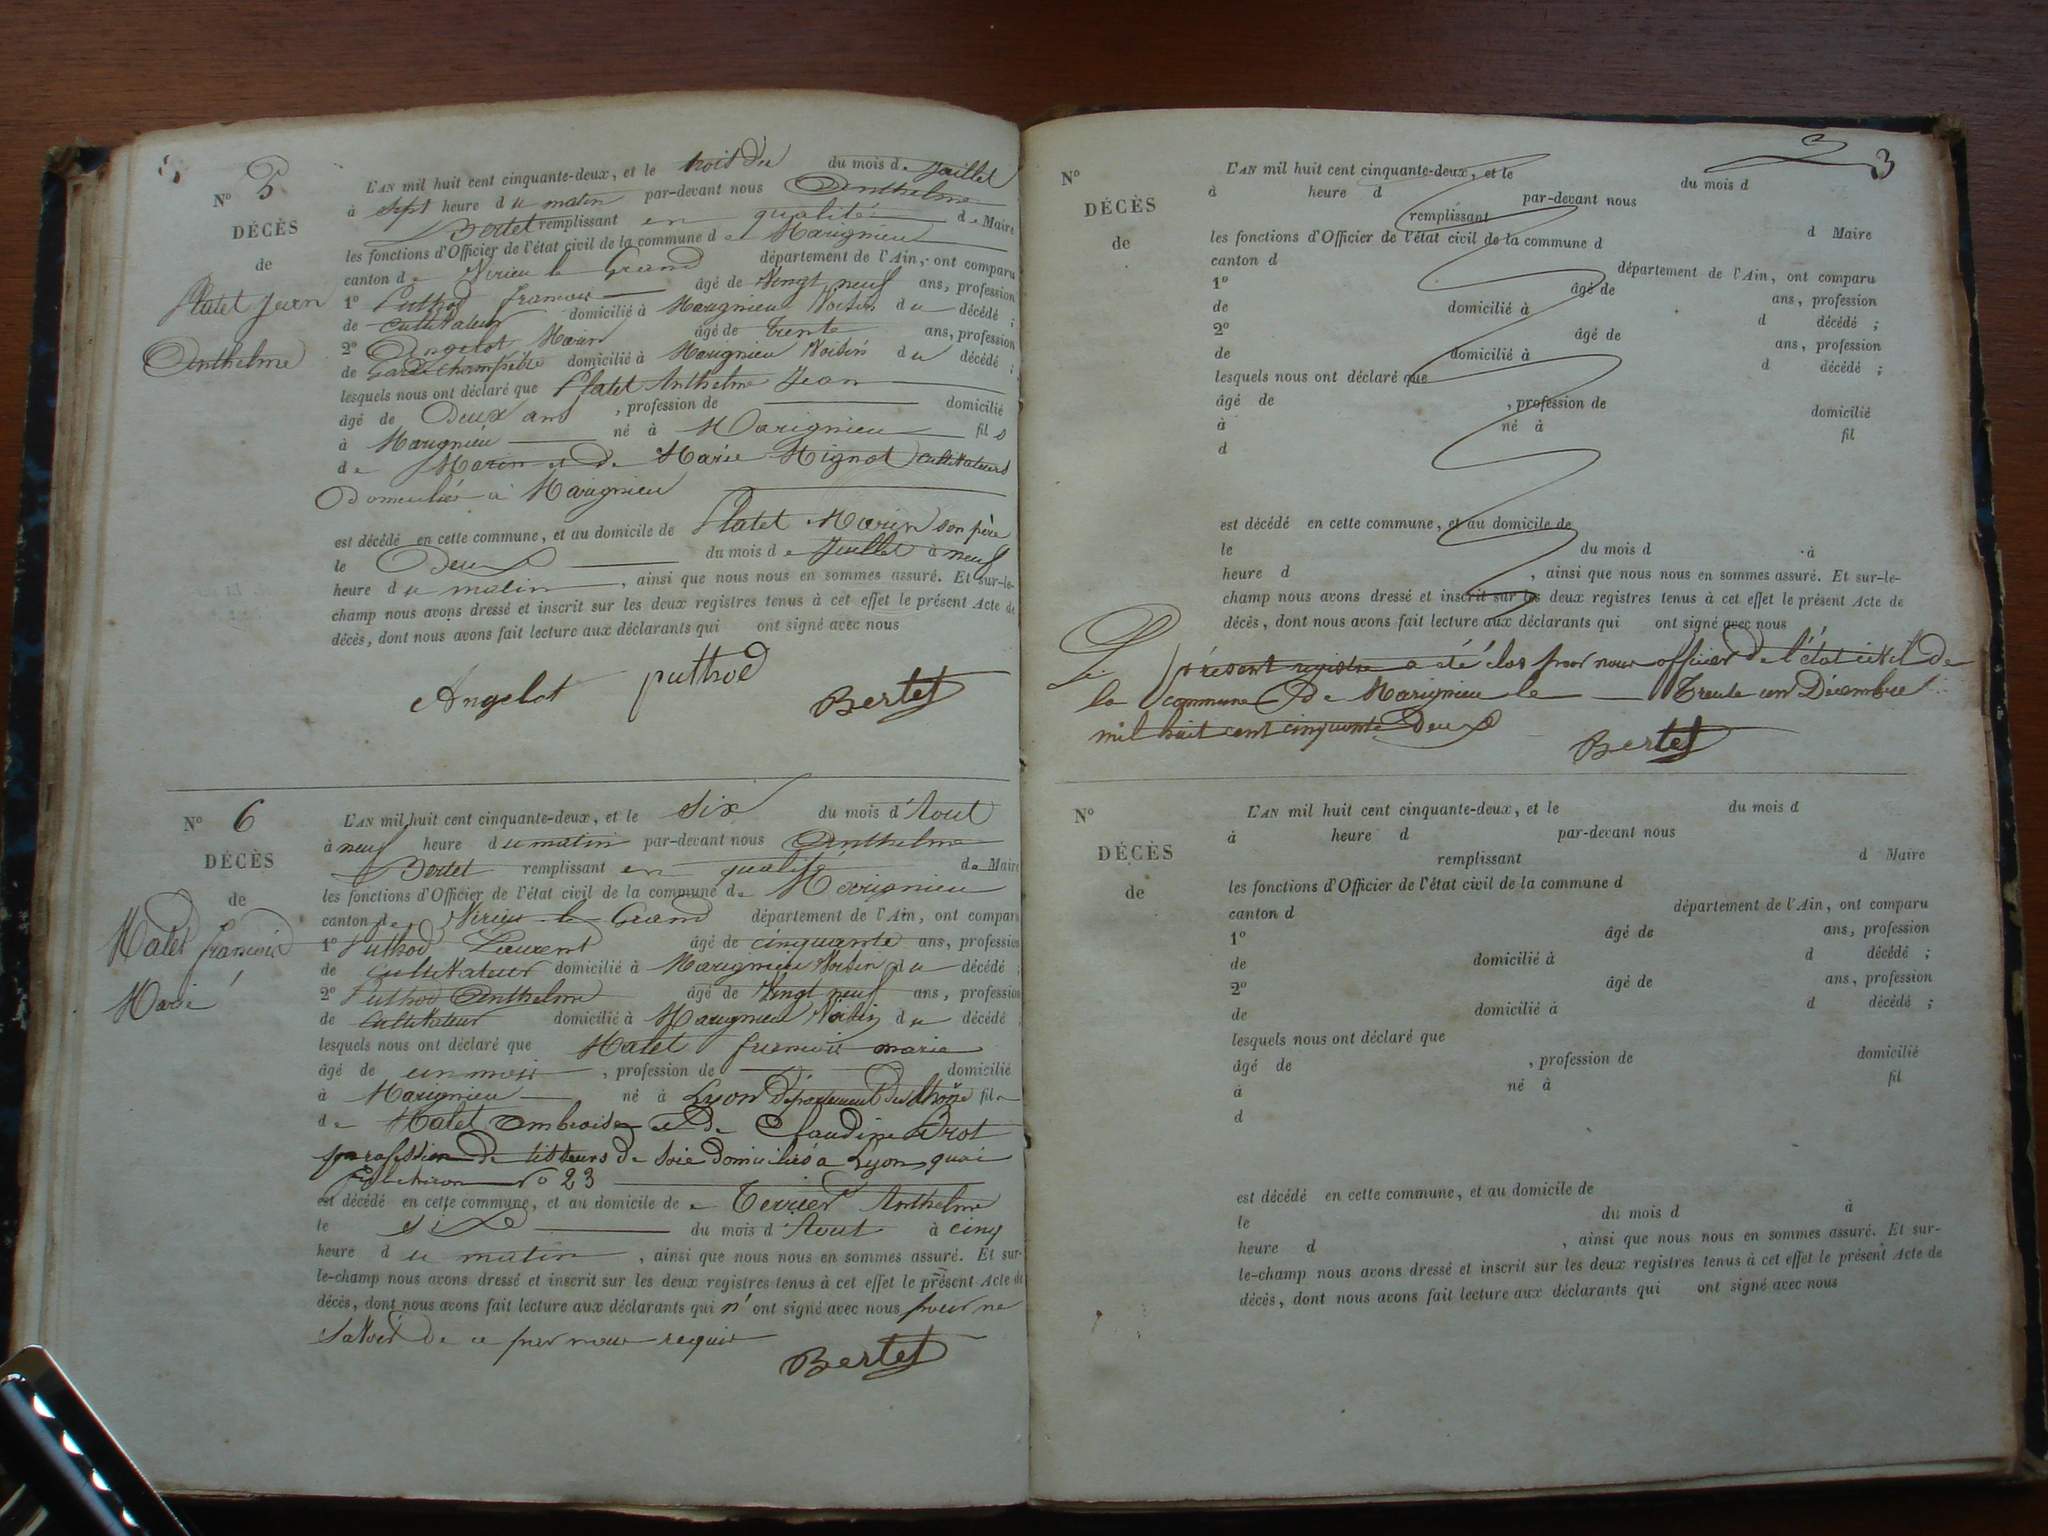 N° 5
DÉCÈS
de
Platet Jean
Anthelme
L'AN mil huit cent cinquante-deux, et le trois du du mois de Juillet
à sept heure du matin par-devant nous Anthelme
Bertet remplissant en qualité de Maire
les fonctions d'Officier de l'état civil de la commune de Marignieu
canton de Virieu le Grand département de l'Ain, ont comparu
1° Puthod francois âgé de Vingt neuf ans, profession
de cultivateur domicilié à Marignieu Voisin du décédé ;
2° Angelot Marin âgé de trente ans, profession
de Garde champêtre domicilié à Marignieu Voisin du décédé ;
lesquels nous ont déclaré que Platet Anthelme Jean
âgé de Deux ans , profession de domicilié
à Marignieu né à Marignieu fils
de Marin et de Marie Mignot cultivateurs
Domiciliés à Marignieu
est décédé en cette commune, et au domicile de Platet Marin son père
le Deux du mois de Juillet à neuf
heure du matin , ainsi que nous nous en sommes assuré. Et sur-le-
champ nous avons dressé et inscrit sur les deux registres tenus à cet effet le présent Acte de
décès, dont nous avons fait lecture aux déclarants qui ont signé avec nous
Angelot puthod Bertet
N° 6
DÉCÈS
de
Malet francois
Marie
L'AN mil huit cent cinquante-deux, et le six du mois d'Aout
à neuf heure du matin par-devant nous Anthelme
Bertet remplissant en qualité de Maire
les fonctions d'Officier de l'état civil de la commune de Marignieu
canton de Virieu le Grand département de l'Ain, ont comparu
1° Puthod Laurent âgé de cinquante ans, profession
de cultivateur domicilié à Marignieu Voisin du décédé ;
2° Puthod Anthelme âgé de Vingt neuf ans, profession
de cultivateur domicilié à Marignieu Voisin du décédé ;
lesquels nous ont déclaré que Malet francois marie
âgé de un mois , profession de domicilié
à Marignieu né à Lyon Département du Rhône fils
de Malet Ambroise et de Claudine Brot
profession de tisseurs de soie domiciliés à Lyon quai
N° 23
est décédé en cette commune, et au domicile de Terrier Anthelme
le six du mois d'Aout à cinq
heure du matin , ainsi que nous nous en sommes assuré. Et sur-
le-champ nous avons dressé et inscrit sur les deux registres tenus à cet effet le présent Acte de
décès, dont nous avons fait lecture aux déclarants qui n'ont signé avec nous pour ne
savoir de ce par nous requis
Bertet
3
N°
DÉCÈS
de
L'AN mil huit cent cinquante-deux, et le du mois d
à heure d par-devant nous
remplissant d Maire
les fonctions d'Officier de l'état civil de la commune d
canton d département de l'Ain, ont comparu
1° âgé de ans, profession
de domicilié à d décédé ;
2° âgé de ans, profession
de domicilié à d décédé ;
lesquels nous ont déclaré que
âgé de , profession de domicilié
à né à fil
d
est décédé en cette commune, et au domicile de
le du mois d à
heure d , ainsi que nous nous en sommes assuré. Et sur-le-
champ nous avons dressé et inscrit sur les deux registres tenus à cet effet le présent Acte de
décès, dont nous avons fait lecture aux déclarants qui ont signé avec nous
Le présent registre a été clos par nous officier de l'état civil de
la commune de Marignieu le Trente un Décembre
mil huit cent cinquante Deux
Bertet
N°
DÉCÈS
de
L'AN mil huit cent cinquante-deux, et le du mois d
à heure d par-devant nous
remplissant d Maire
les fonctions d'Officier de l'état civil de la commune d
canton d département de l'Ain, ont comparu
1° âgé de ans, profession
de domicilié à d décédé ;
2° âgé de ans, profession
de domicilié à d décédé ;
lesquels nous ont déclaré que
âgé de , profession de domicilié
à né à fil
d
est décédé en cette commune, et au domicile de
le du mois d à
heure d , ainsi que nous nous en sommes assuré. Et sur-
le-champ nous avons dressé et inscrit sur les deux registres tenus à cet effet le présent Acte de
décès, dont nous avons fait lecture aux déclarants qui ont signé avec nous